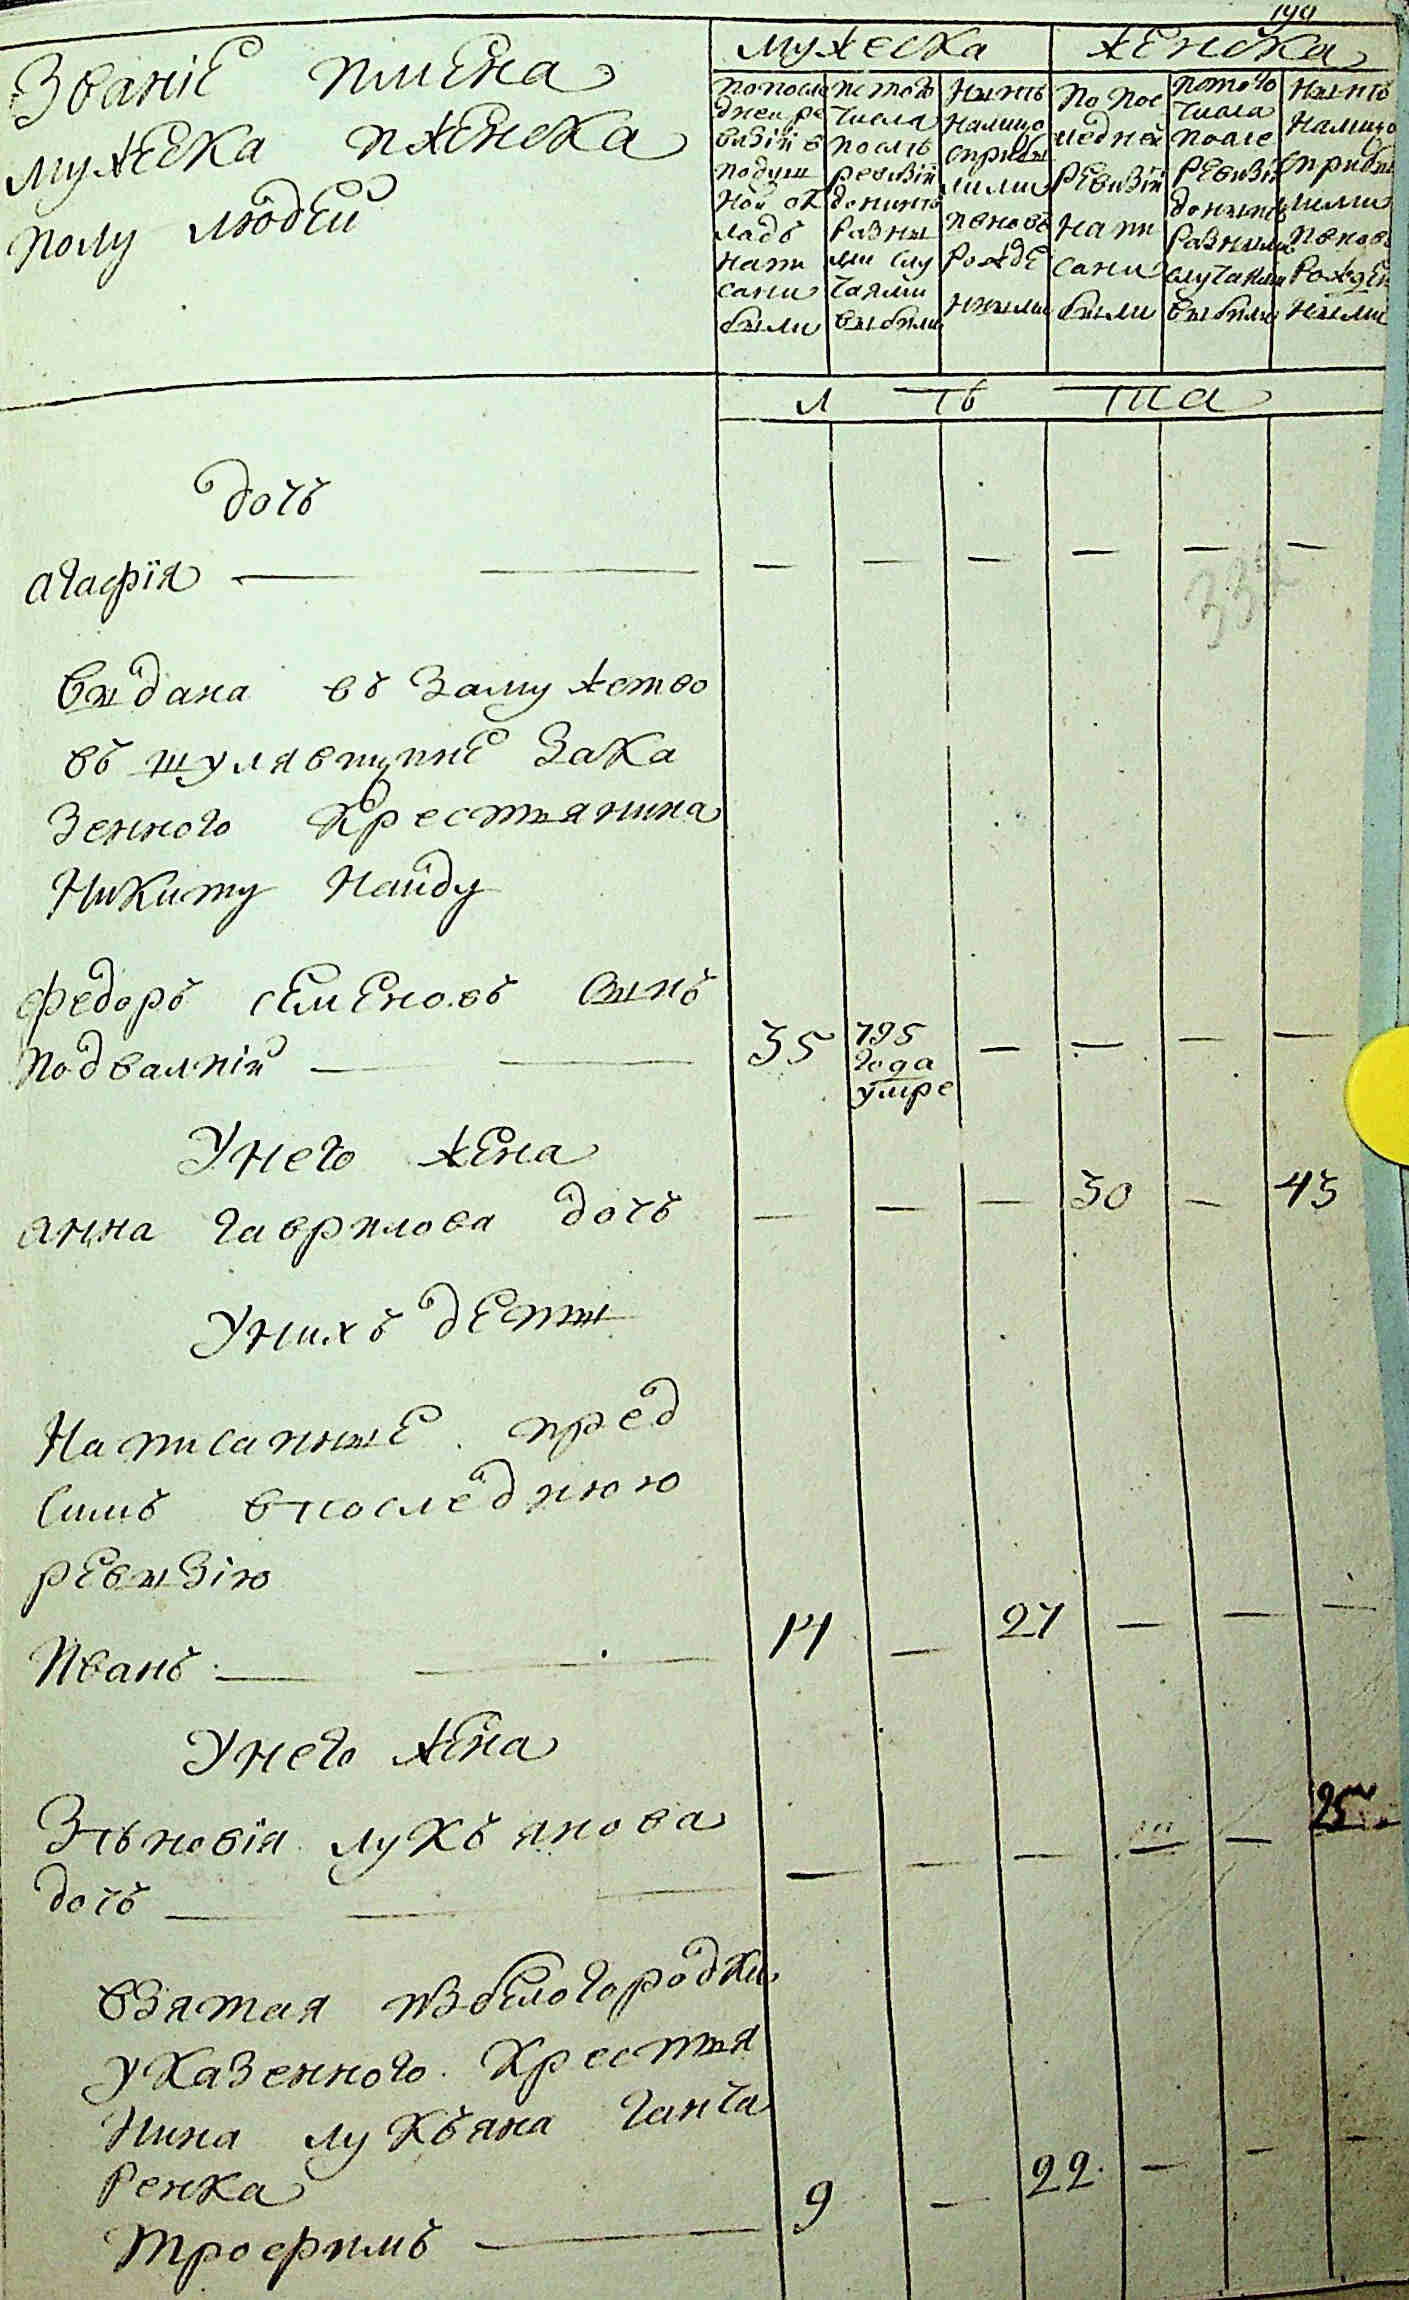 199
Званіе иимена
мужеска иженска
полу людей
мужеска
женска
попосле
дней ре
визіи в
подуш
ной ок
ладъ
напи
сани
были
истого
числа
послѣ
ревизіи
донинѣ
разны
ми слу
чаями
выбили
нынѣ
налицо
сприбы
лими
иновь
рожде
нными
по пос
ледней
ревизіи
напи
сани
были
истого
числа
после
ревизіи
донынѣ
разными
случаями
выбили
нынѣ
налицо
сприбы
лими
иновь
рожден
ными
л ѣ та
дочъ
агафія — — — — — — — —
332
выдана въ замужство
въ шулявщине зака
зенного крестьянина
Никиту Найду
федоръ семеновъ сынъ
подвалній — — 35 795 — — — —
года
умре
Унего жена
анна гаврилова дочъ — — — 30 — 43
Унихъ дети
Написанные пред
симъ впоследнюю
ревызію
Иванъ — — 14 — 27 — — —
Унего жена
Зѣновія лукъянова
дочъ — — — — — — — — 25
взятая избелогородки
указенного крестья
нина лукъяна ганча
ренка
трофимъ — 9 — 22 — — —